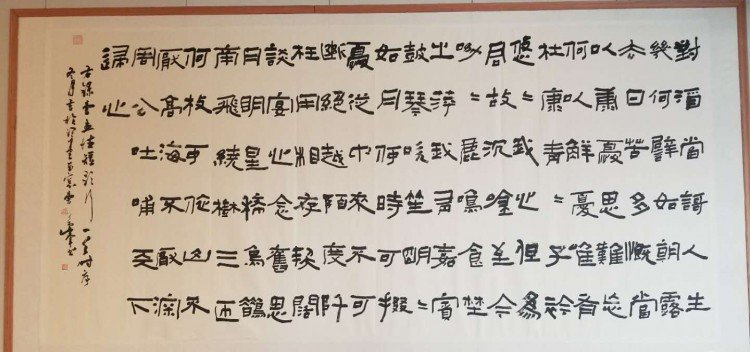 對酒當歌人生
幾何譬如朝露
去日苦多慨當
以慷憂思難忘
何以解憂唯有
杜康青=子衿
悠=我心但為
君故沉吟至今
呦=鹿鳴食野
之苹我有嘉賓
鼓琴吹笙明=
如月何時可掇
憂從中來不可
斷絕越陌度阡
枉用相存契闊
談宴心念舊恩
月明星稀烏鵲
南飛繞樹三匝
何枝可依山不
厭高海不厭深
周公吐哺天下
歸心
短歌行一首時序